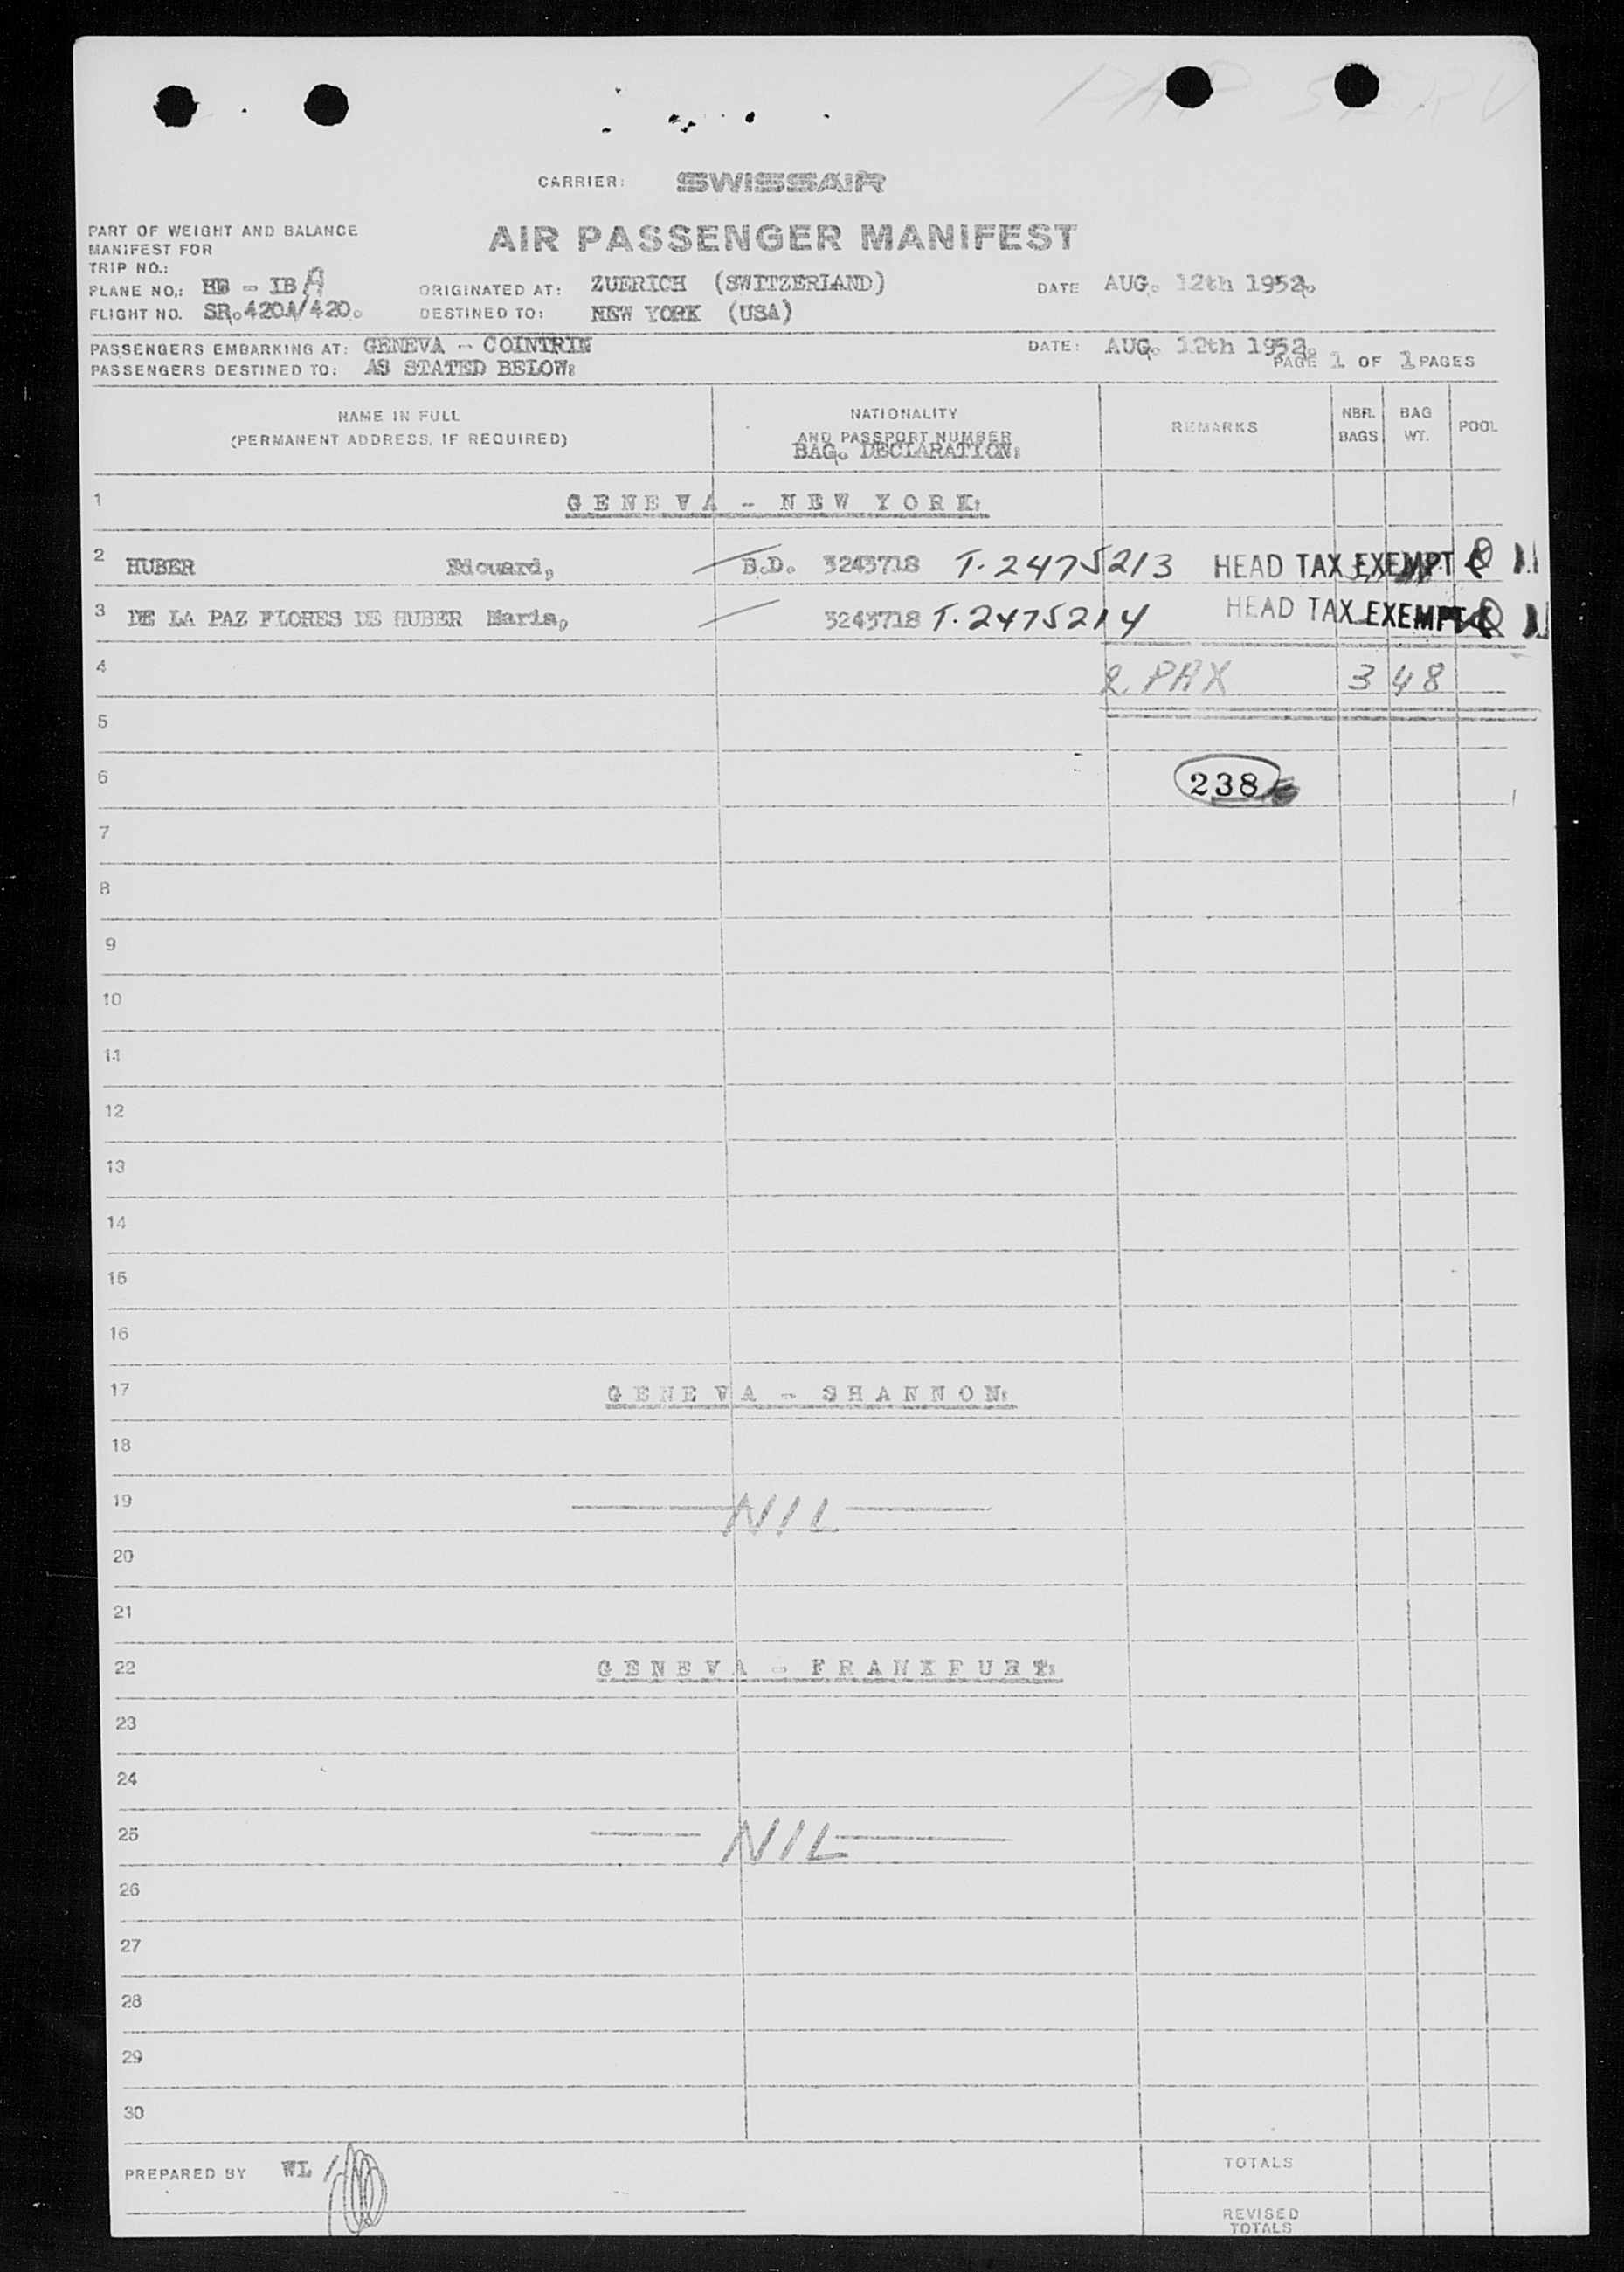 CARRIER: SWISSAIR
PART OF WEIGHT AND BALANCE
MANIFEST FOR
AIR PASSENGER MANIFEST
TRIP NO.:
PLANE NO.: HB - IBA
ORIGINATED AT: ZUERICH (SWITZERLAND)
DATE AUG. 12th 1952.
FLIGHT NO. SR.420A/420.
DESTINED TO: NEW YORK (USA)
PASSENGERS EMBARKING AT: GENEVA - COINTRIN
DATE: AUG. 12th 1952.
PASSENGERS DESTINED TO: AS STATED BELOW:
PAGE 1 OF 1 PAGES
NAME IN FULL
(PERMANENT ADDRESS, IF REQUIRED)
NATIONALITY
AND PASSPORT NUMBER
BAG. DECLARATION:
REMARKS
NBR. BAGS
BAG WT.
POOL
1 GENEVA - NEW YORK:
2 HUBER Edouard, B.D. 3243718 T-2475213 HEAD TAX EXEMPT
3 DE LA PAZ FLORES DE HUBER Maria, 3243718 T-2475214 HEAD TAX EXEMPT
4 2 PAX 3 48
5
6 238
7
8
9
10
11
12
13
14
15
16
17 GENEVA - SHANNON:
18
19 NIL
20
21
22 GENEVA - FRANKFURT:
23
24
25 NIL
26
27
28
29
30
PREPARED BY WL
TOTALS
REVISED
TOTALS